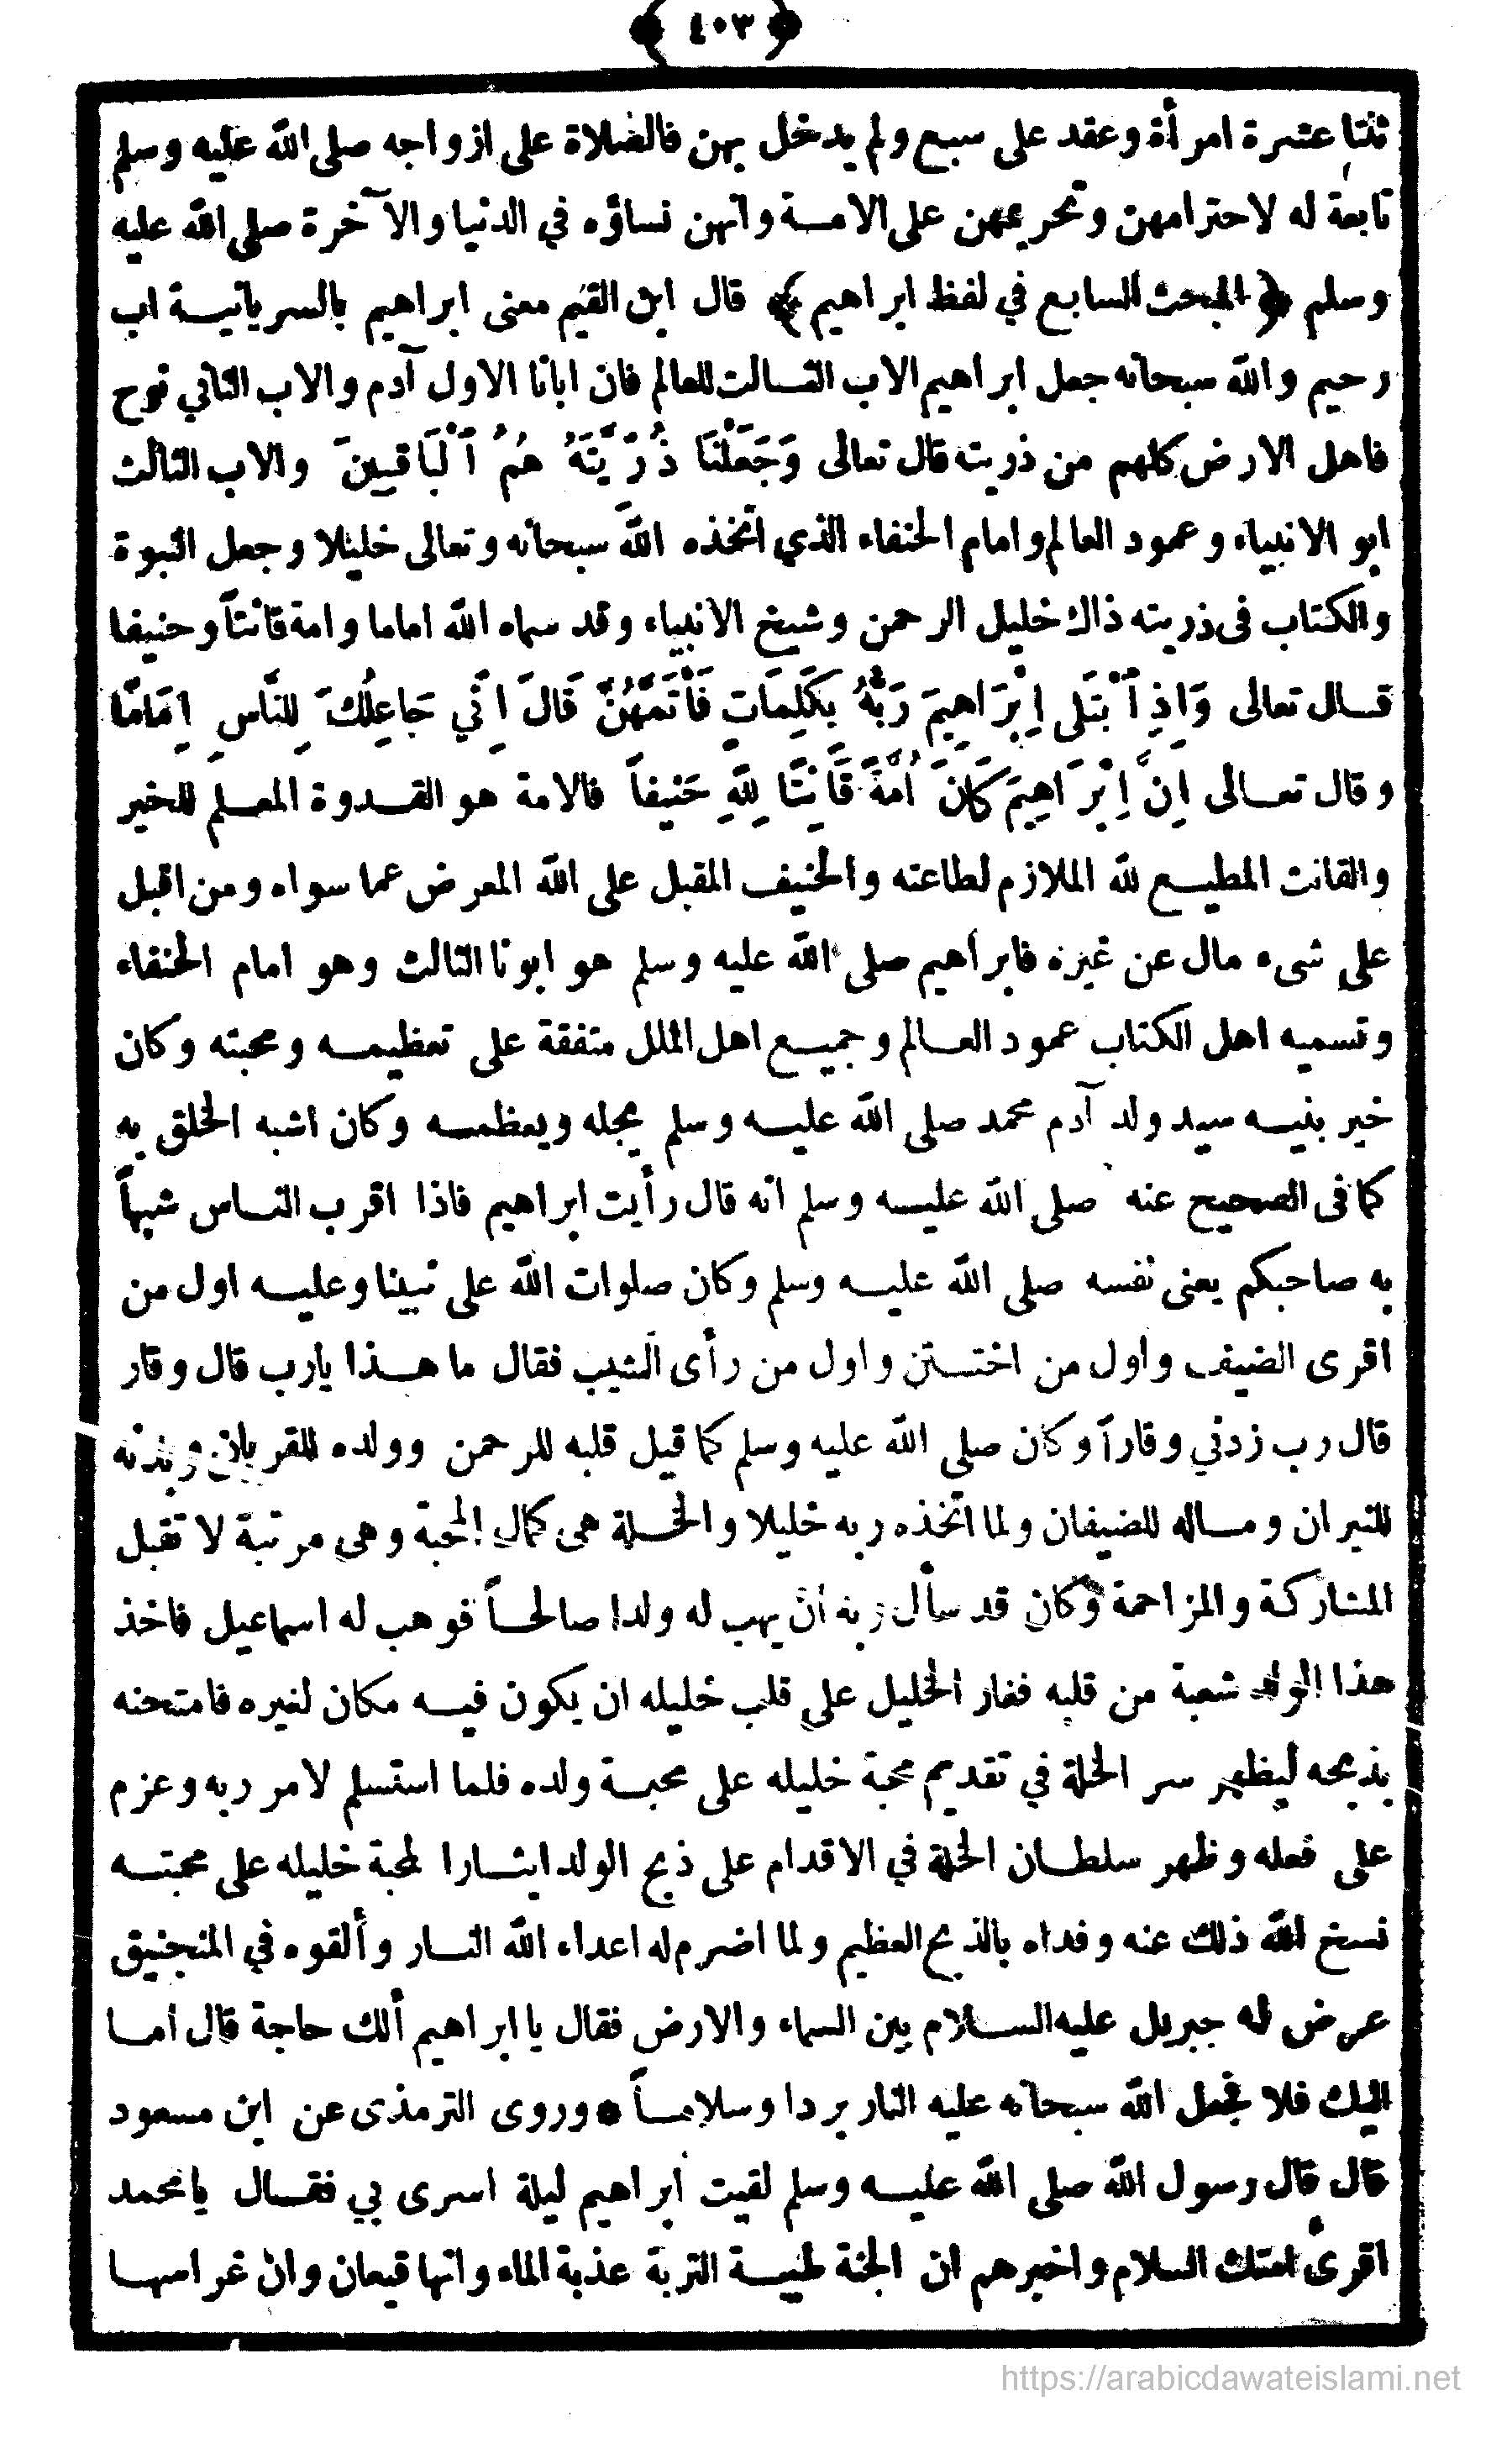 ﴿ ٤٠٣ ﴾
ثنتا عشرة امرأة وعقد على سبع ولم يدخل بهن فالصلاة على ازواجه صلى الله عليه وسلم
تابعة له لاحترامهن وتحريمهن على الامة وانهن نساؤه في الدنيا والآخرة صلى الله عليه
وسلم ﴿ المبحث السابع في لفظ ابراهيم ﴾ قال ابن القيم معنى ابراهيم بالسريانية اب
رحيم والله سبحانه جعل ابراهيم الاب الثالث للعالم فان ابانا الاول آدم والاب الثاني نوح
فاهل الارض كلهم من ذريته قال تعالى وَجَعَلْنَا ذُرِّيَّتَهُ هُمُ ٱلْبَاقِينَ والاب الثالث
ابو الانبياء وعمود العالم وامام الحنفاء الذي اتخذه الله سبحانه وتعالى خليلا وجعل النبوة
والكتاب فى ذريته ذاك خليل الرحمن وشيخ الانبياء وقد سماه الله اماما وامة قانتاً وحنيفا
قال تعالى وَاِذِ ٱبْتَلَى اِبْرَاهِيمَ رَبُّهُ بِكَلِمَاتٍ فَأَتَمَّهُنَّ قَالَ اِنِّي جَاعِلُكَ لِلنَّاسِ اِمَامًا
وقال تعالى اِنَّ اِبْرَاهِيمَ كَانَ اُمَّةً قَانِتًا لِلهِ حَنِيفاً فالامة هو القدوة المعلم للخير
والقانت المطيع لله الملازم لطاعته والحنيف المقبل على الله المعرض عما سواه ومن اقبل
على شىء مال عن غيره فابراهيم صلى الله عليه وسلم هو ابونا الثالث وهو امام الحنفاء
وتسميه اهل الكتاب عمود العالم وجميع اهل الملل متفقة على تعظيمه ومحبته وكان
خير بنيه سيد ولد آدم محمد صلى الله عليه وسلم يجله ويعظمه وكان اشبه الخلق به
كما فى الصحيح عنه صلى الله عليه وسلم انه قال رأيت ابراهيم فاذا اقرب الناس شبهاً
به صاحبكم يعنى نفسه صلى الله عليه وسلم وكان صلوات الله على نبينا وعليه اول من
اقرى الضيف واول من اختتن واول من رأى الشيب فقال ما هذا يارب قال وقار
قال رب زدني وقاراً وكان صلى الله عليه وسلم كما قيل قلبه للرحمن وولده للقربان وبدنه
للنيران وماله للضيفان ولما اتخذه ربه خليلا والخلة هى كمال المحبة وهى مرتبة لا تقبل
المشاركة والمزاحمة وكان قد سأل ربه ان يهب له ولدا صالحاً فوهب له اسماعيل فاخذ
هذا الولد شعبة من قلبه فغار الخليل على قلب خليله ان يكون فيه مكان لغيره فامتحنه
بذبحه ليظهر سر الخلة في تقديم محبة خليله على محبة ولده فلما استسلم لامر ربه وعزم
على فعله وظهر سلطان الخلة في الاقدام على ذبح الولد ايثارا لمحبة خليله على محبته
نسخ الله ذلك عنه وفداه بالذبح العظيم ولما اضرم له اعداء الله النار وألقوه في المنجنيق
عرض له جبريل عليه السلام بين السماء والارض فقال يا ابراهيم ألك حاجة قال اما
اليك فلا فجعل الله سبحانه عليه النار بردا وسلاماً • وروى الترمذى عن ابن مسعود
قال قال رسول الله صلى الله عليه وسلم لقيت ابراهيم ليلة اسرى بي فقال يا محمد
اقرئ امتك السلام واخبرهم ان الجنة طيبة التربة عذبة الماء وانها قيعان وان غراسها
https://arabicdawateislami.net